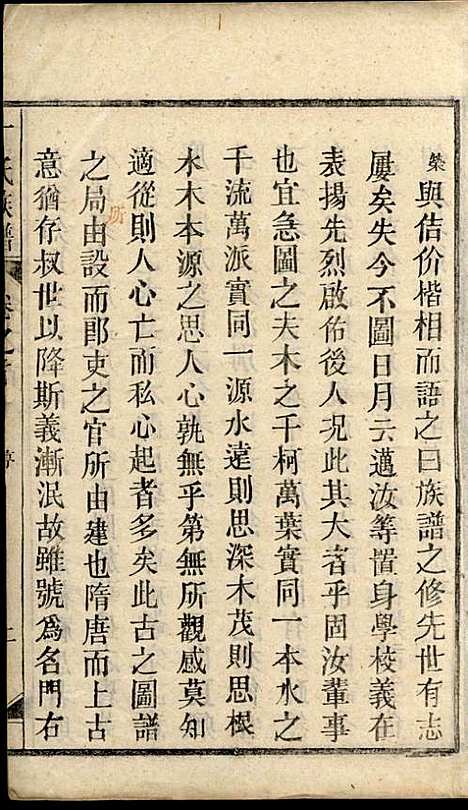 榮與佶价楷相而語之曰族譜之修先世有志
屢矣失今不圖日月云邁汝等置身學校義在
表揚先烈啟佑後人況此其大者乎固汝輩事
也宜急圖之夫木之千柯萬葉實同一本水之
千流萬派實同一源水遠則思深木茂則思根
水木本源之思人心孰無乎第無所觀感莫知
適從則人心亡而私心起者多矣此古之圖譜
之局由設而郎吏之官所由建也隋唐而上古
所
意猶存叔世以降斯義漸泯故雖號為名門右
氏族譜 卷之首